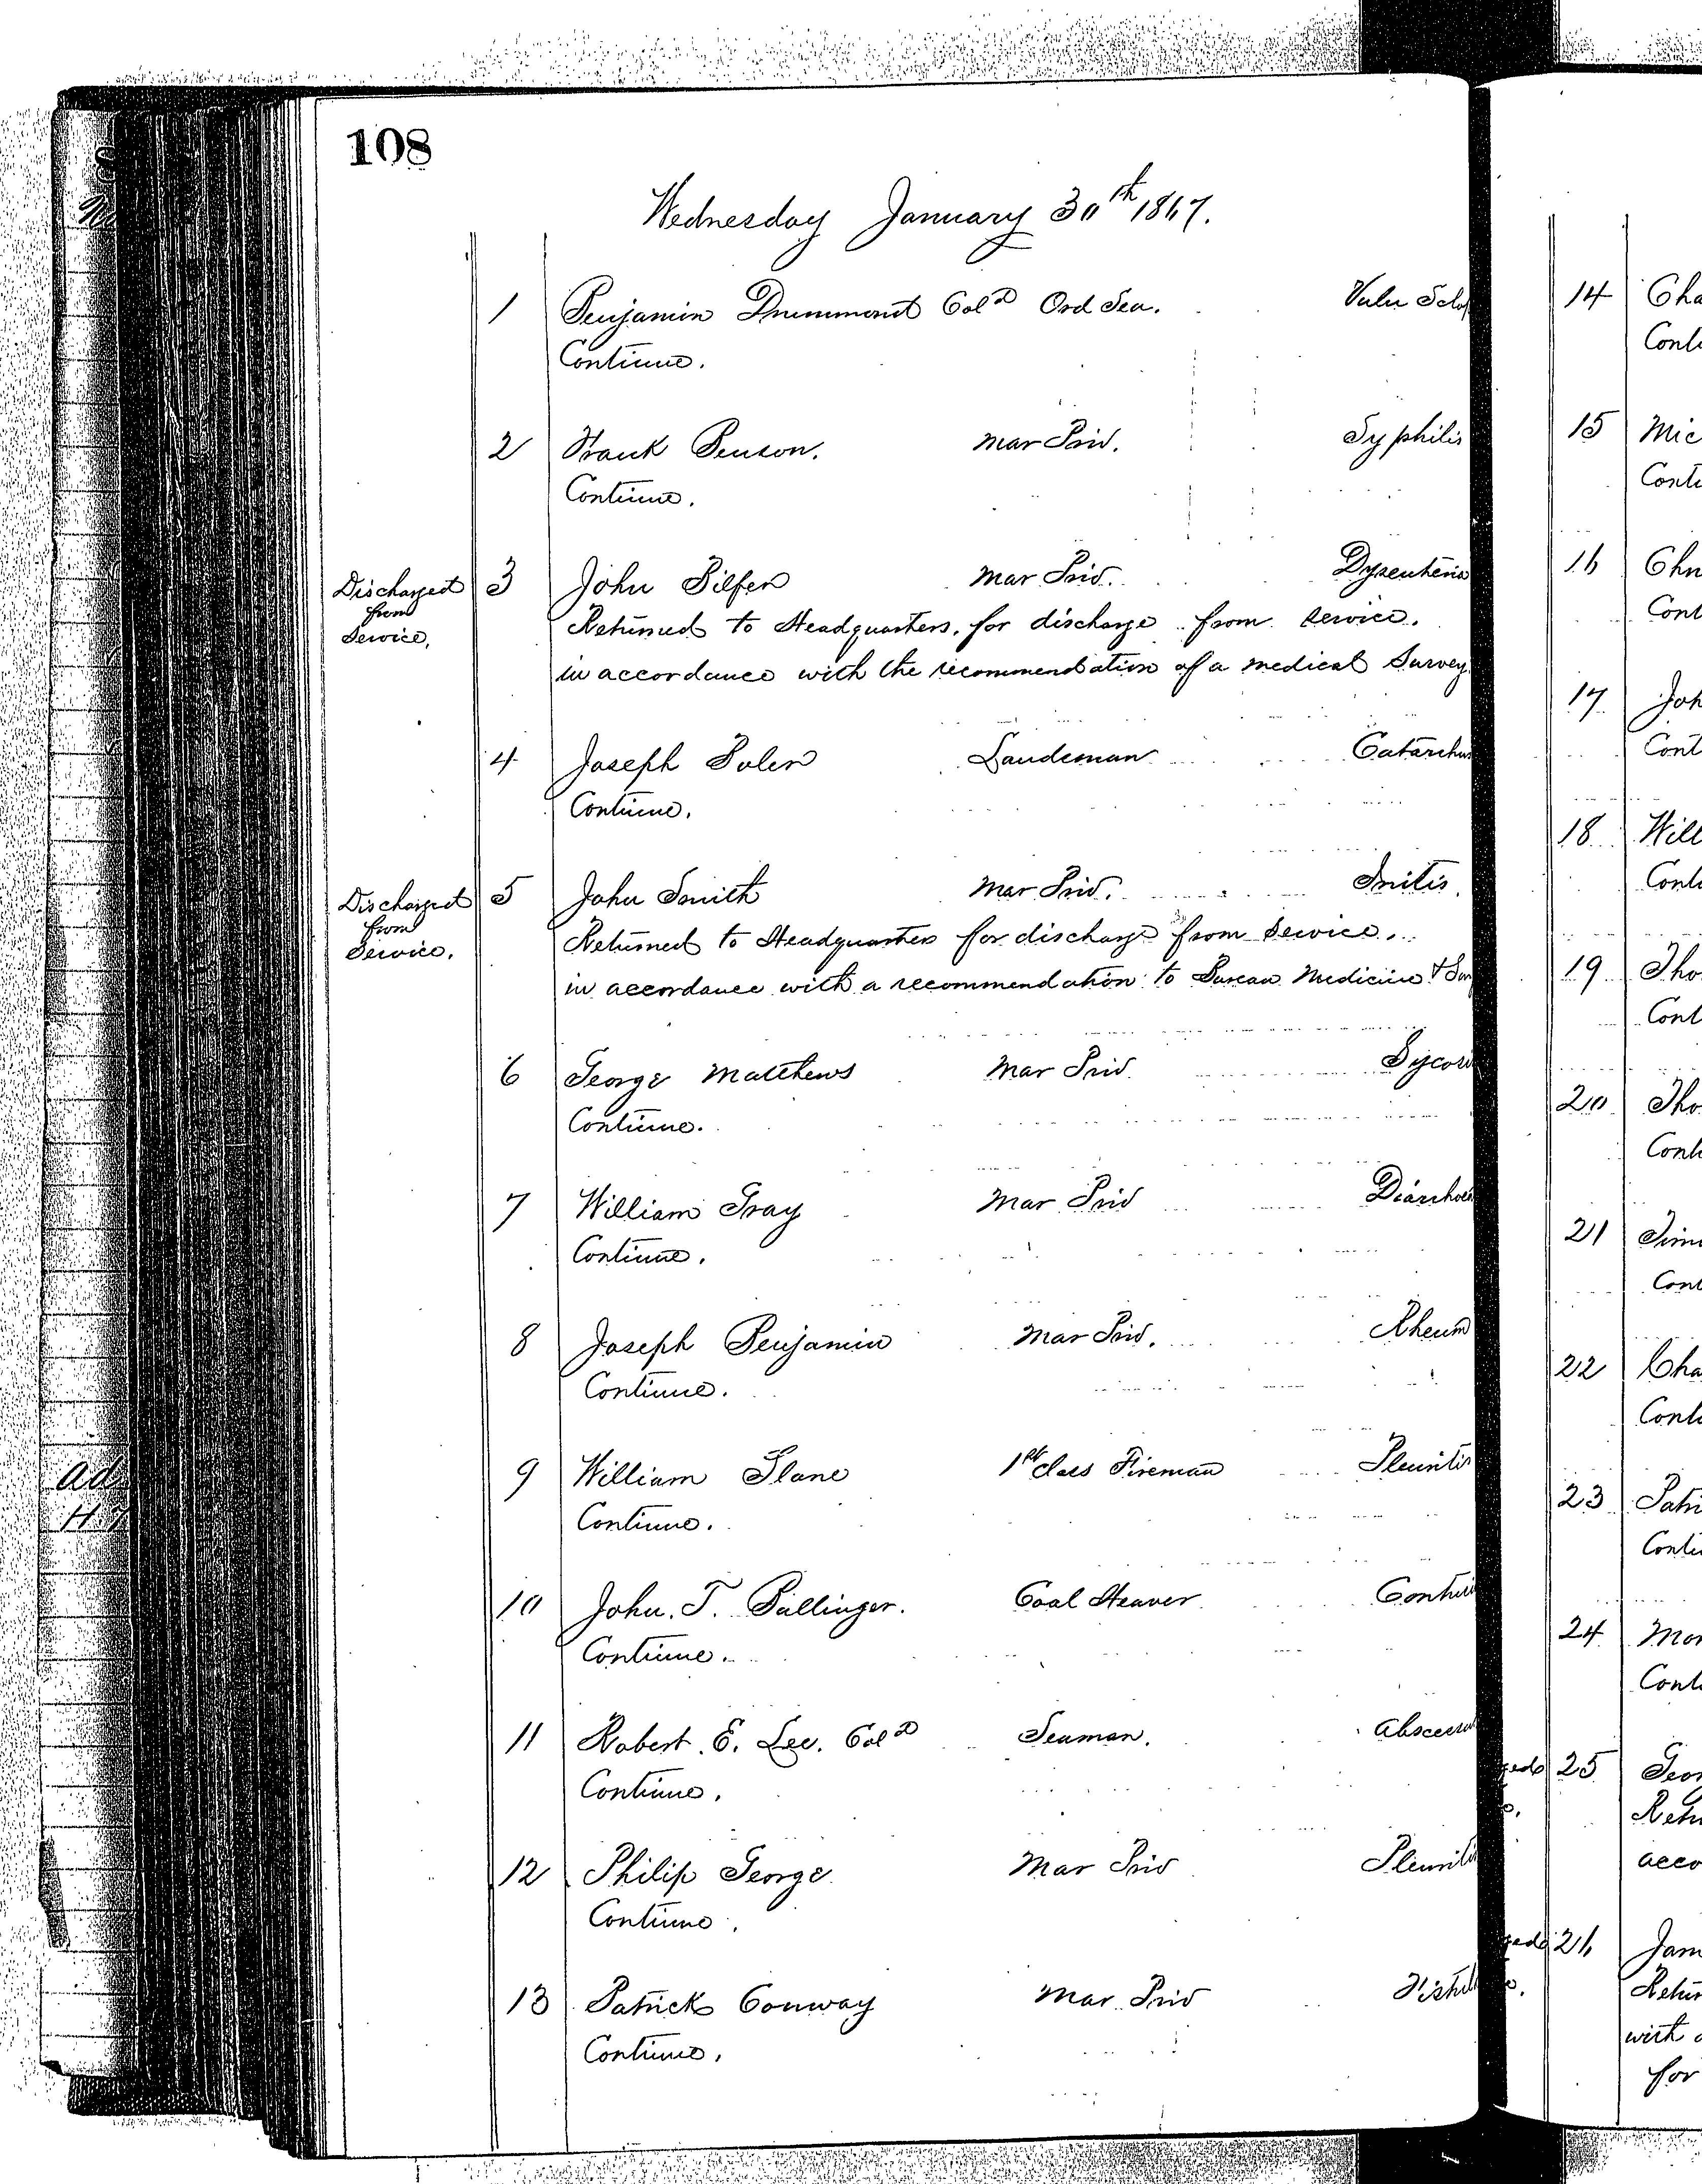 108
Wednesday January 30th 1867.
1 Benjamin Drummond Cold Ord Sea. Vuln Sclop
Continue.
2 Frank Benson. Mar Priv. Syphilis
Continue.
Discharged from Service. 3 John Pilfer Mar Priv. Dysenteria
Returned to Headquarters, for discharge from service.
in accordance with the recommendation of a medical Survey
4 Joseph Landsman Catarrhus
Continue.
Discharged from Service. 5 John Smith Mar Priv. Iritis.
Returned to Headquarters for discharge from Service.
in accordance with a recommendation to Bureau Medicine & Sur
6 George Matthews Mar Priv. Sycosis
Continue.
7 William Gray Mar Priv Diarrhoea
Continue.
8 Joseph Benjamin Mar Priv. Rheum
Continue.
9 William Slane 1st Class Fireman Pleuritis
Continue.
10 John. T. Ballinger. Coal Heaver Contusi
Continue.
11 Robert. E. Lee. Cold Seaman. Abscessus
Continue.
12 Philip George Mar Priv Pleuritis
Continue.
13 Patrick Conway Mar Priv Fistul
Continue.
14 Cha
Conti
15 Mic
Conti
16 Chr
Cont
17 Joh
Cont
18 Will
Conti
19 Tho
Cont
20 Tho
Conti
21 Tim
Cont
22 Cha
Conti
23 Patri
Conti
24 Mor
Conti
25 Geor
Retu
acco
26 Jam
Retur
with a
for